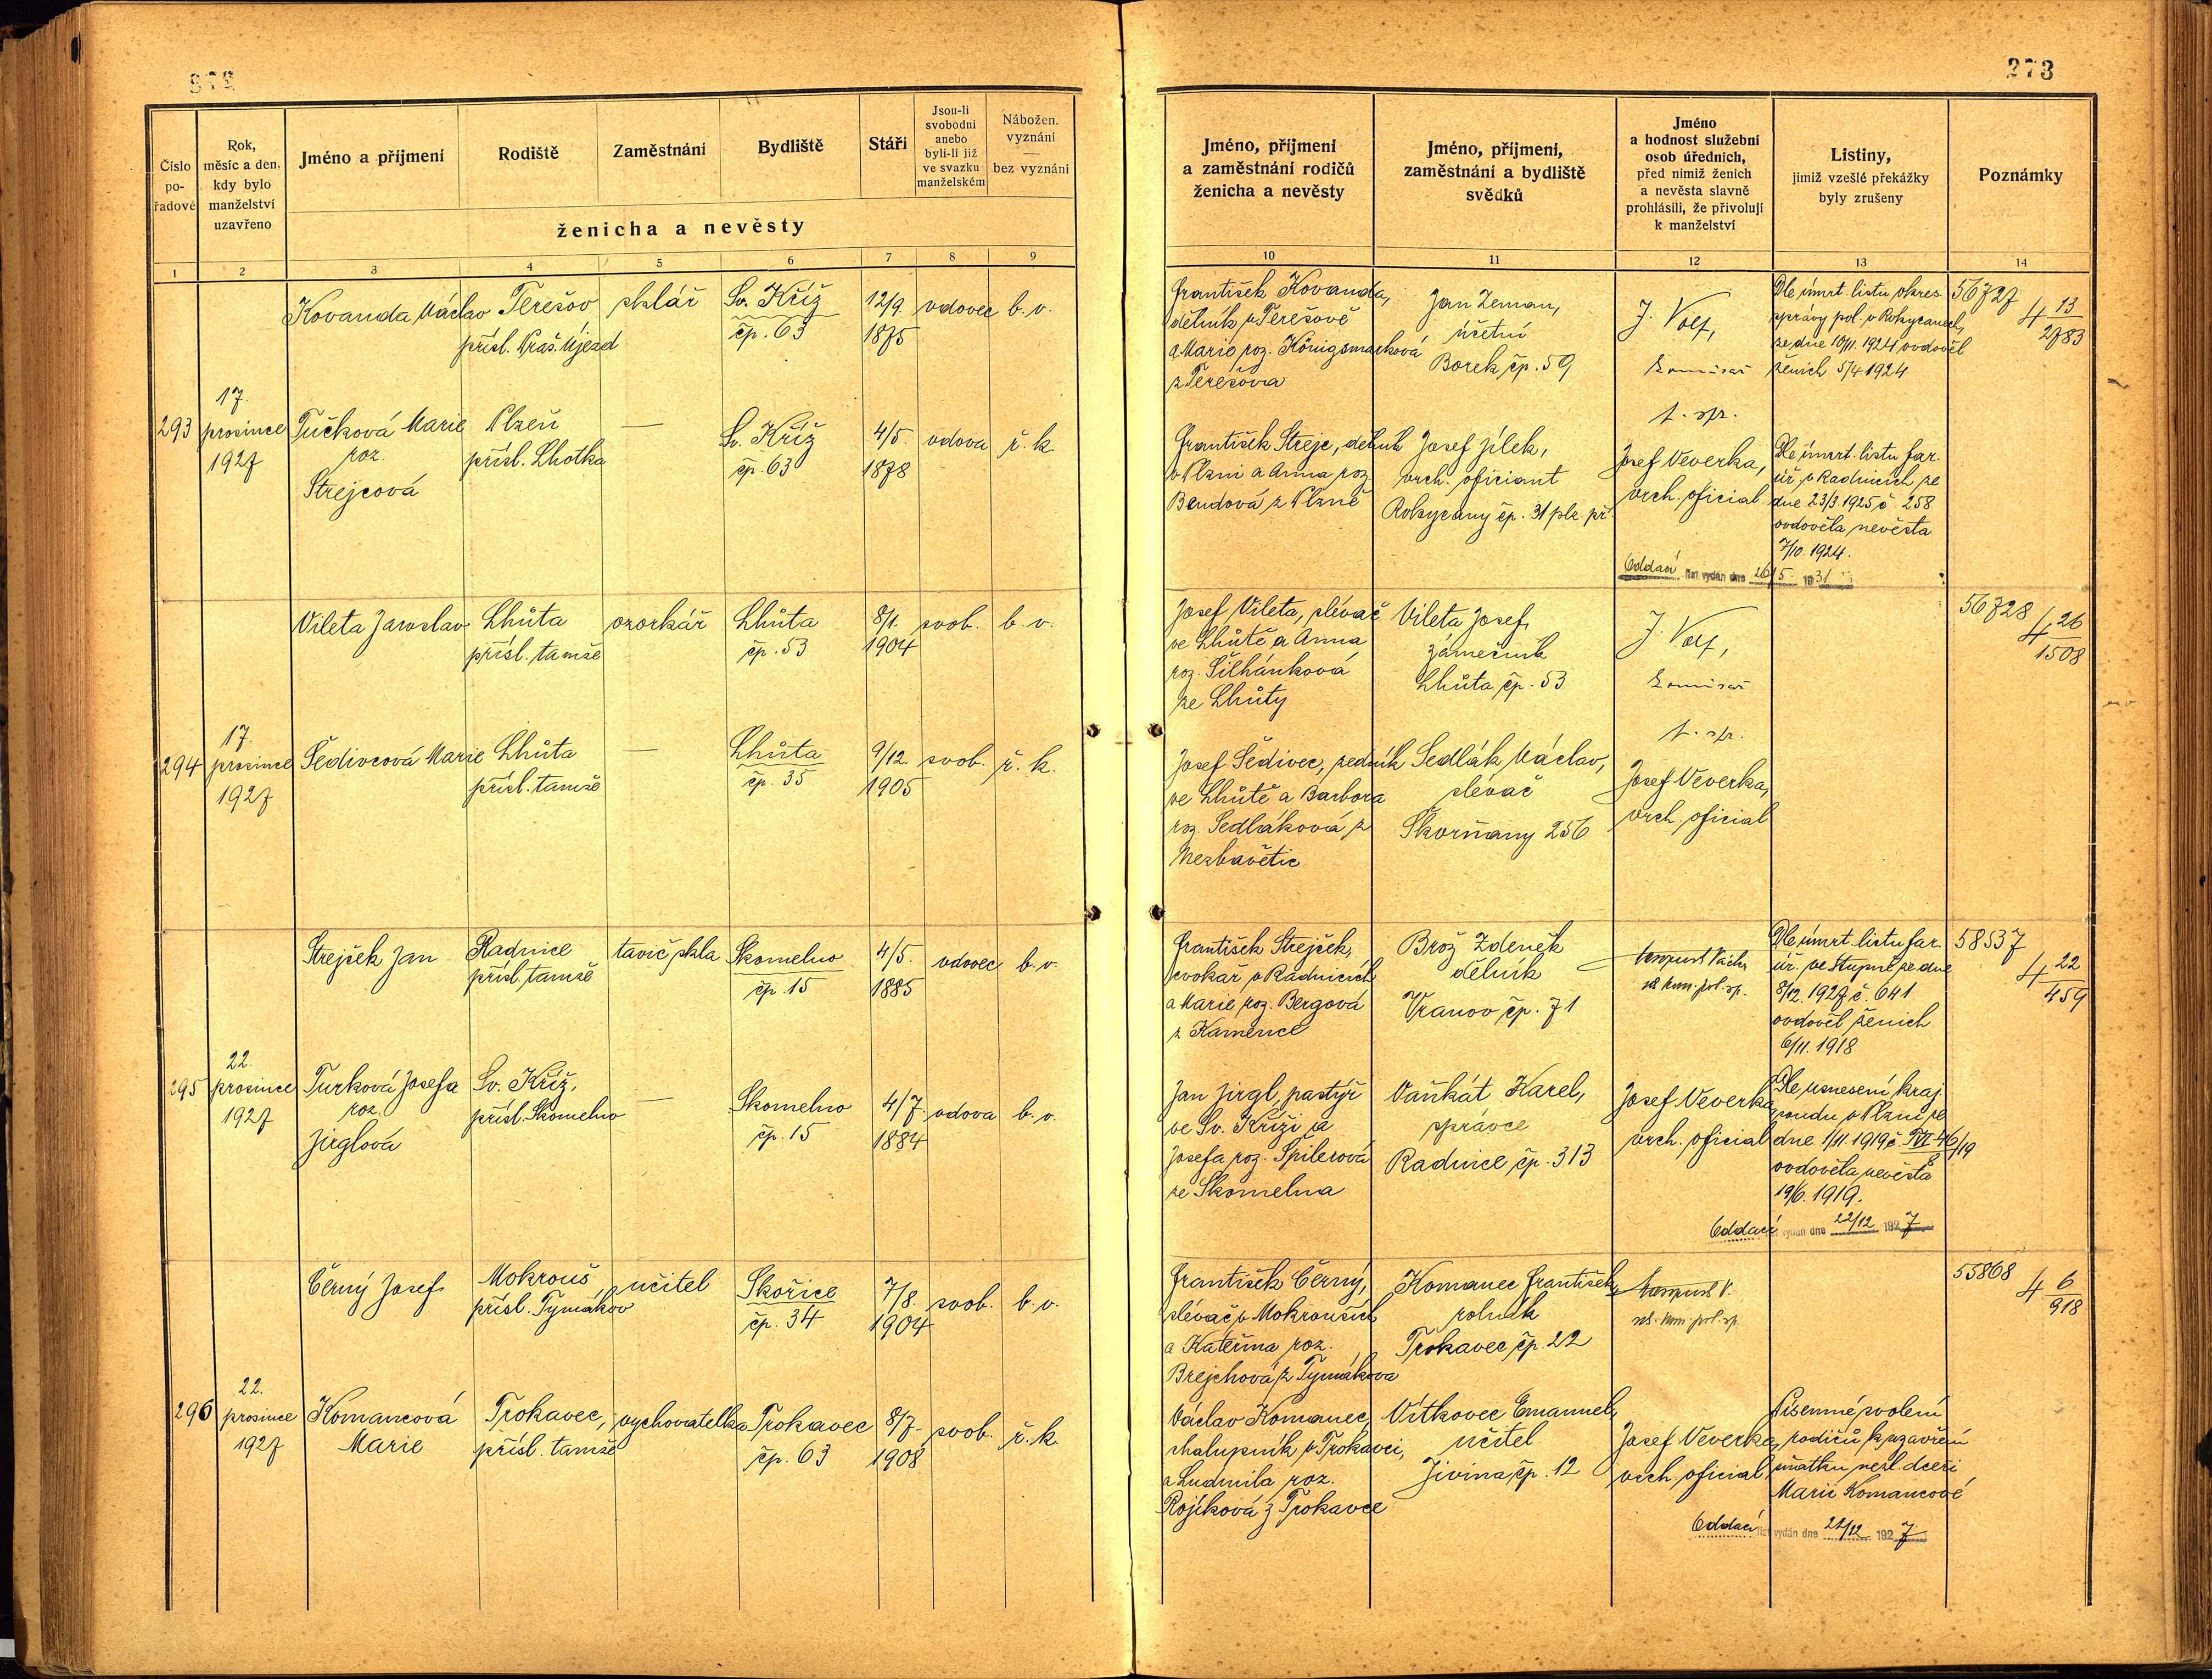 272
273
Číslo pořadové
Rok, měsíc a den, kdy bylo manželství uzavřeno
Jméno a příjmení
Rodiště
Zaměstnání
Bydliště
Stáří
Jsou-li svobodni anebo byli-li již ve svazku manželském
Nábožen. vyznání — bez vyznání
ženicha a nevěsty
Jméno, příjmení a zaměstnání rodičů ženicha a nevěsty
Jméno, příjmení, zaměstnání a bydliště svědků
Jméno a hodnost služební osob úředních, před nimiž ženich a nevěsta slavně prohlásili, že přivolují k manželství
Listiny, jimiž vzešlé překážky byly zrušeny
Poznámky
1 2 3 4 5 6 7 8 9 10 11 12 13 14
293
17.
prosince
1927
Kovanda Václav
Terešov
přísl. Praš. Újezd
sklář
Sv. Kříž
čp. 63
12/9.
1875
vdovec
b. v.
František Kovanda,
dělník v Terešově
a Marie roz. Königsmarková
z Terešova
Jan Zeman,
účetní
Borek, čp. 59
J. Volf,
komisař
p. spr.
Dle úmrt. listu okres.
správy pol. v Rokycanech,
ze dne 10/11. 1924 ovdověl
ženich 5/4 1924
56727
4 13/2783
Tučková Marie
roz.
Strejcová
Plzeň
přísl. Lhotka
—
Sv. Kříž
čp. 63
4/5.
1878
vdova
ř. k.
František Strejc, dělník
v Plzni a Anna roz.
Bendová z Plzně
Josef Jílek,
vrch. oficiant
Rokycany čp. 31 plz. př.
Josef Veverka,
vrch. oficial
Dle úmrt. listu far.
úř. v Radnicích ze
dne 23/3 1925 č. 258
ovdověla nevěsta
7/10. 1924.
Oddací list vydán dne 26/5. 1931
294
17.
prosince
1927
Vileta Jaroslav
Lhůta
přísl. tamže
ozorkář
Lhůta
čp. 53
8/1.
1904
svob.
b. v.
Josef Vileta, slévač
ve Lhůtě a Anna
roz. Šilhánková
ze Lhůty
Vileta Josef,
zámečník
Lhůta, čp. 53
J. Volf,
komisař
p. spr.
56728
4 26/1508
Šedivcová Marie
Lhůta
přísl. tamže
—
Lhůta
čp. 35
9/12.
1905
svob.
ř. k.
Josef Šedivec, zedník
ve Lhůtě a Barbora
roz. Sedláková z
Nezbavětic
Sedlák Václav,
slévač
Škorňany 256
Josef Veverka,
vrch. oficial
295
22.
prosince
1927
Strejček Jan
Radnice
přísl. tamže
tavič skla
Skomelno
čp. 15
4/5.
1885
vdovec
b. v.
František Strejček,
cvokař v Radnicích
a Marie roz. Bergová
z Kamence
Brož Zdeněk
dělník
Vranov, čp. 71
Dle úmrt. listu far.
úř. ve Stupně ze dne
8/12. 1927 č. 641
ovdověl ženich
6/11. 1918
58537
4 22/459
Turková Josefa
roz.
Jirglová
Sv. Kříž,
přísl. Skomelno
—
Skomelno
čp. 15
4/7.
1884
vdova
b. v.
Jan Jirgl, pastýř
ve Sv. Kříži a
Josefa roz. Špilerová
ze Skomelna
Vaňkát Karel,
správce
Radnice, čp. 313
Josef Veverka
vrch. oficial
Dle usnesení kraj.
soudu v Plzni ze
dne 1/11. 1919 č.
ovdověla nevěsta
19/6. 1919.
Oddací vydán dne 22/12 1927
296
22.
prosince
1927
Černý Josef
Mokrouš
přísl. Tymákov
učitel
Skořice
čp. 34
7/8.
1904
svob.
b. v.
František Černý,
slévač v Mokrouších
a Kateřina roz.
Brejchová z Tymákova
Komanec František,
rolník
Trokavec, čp. 22
55868
4 6/918
Komancová
Marie
Trokavec,
přísl. tamže
vychovatelka
Trokavec
čp. 63
8/7.
1908
svob.
ř. k.
Václav Komanec,
chalupník v Trokavci,
a Ludmila roz.
Rojíková z Trokavce
Vítkovec Emanuel,
učitel
Jivina, čp. 12
Josef Veverka,
vrch. oficial
Písemné svolení
rodičů k uzavření
sňatku nezl. dceři
Marii Komancové
Oddací list vydán dne 22/12 1927